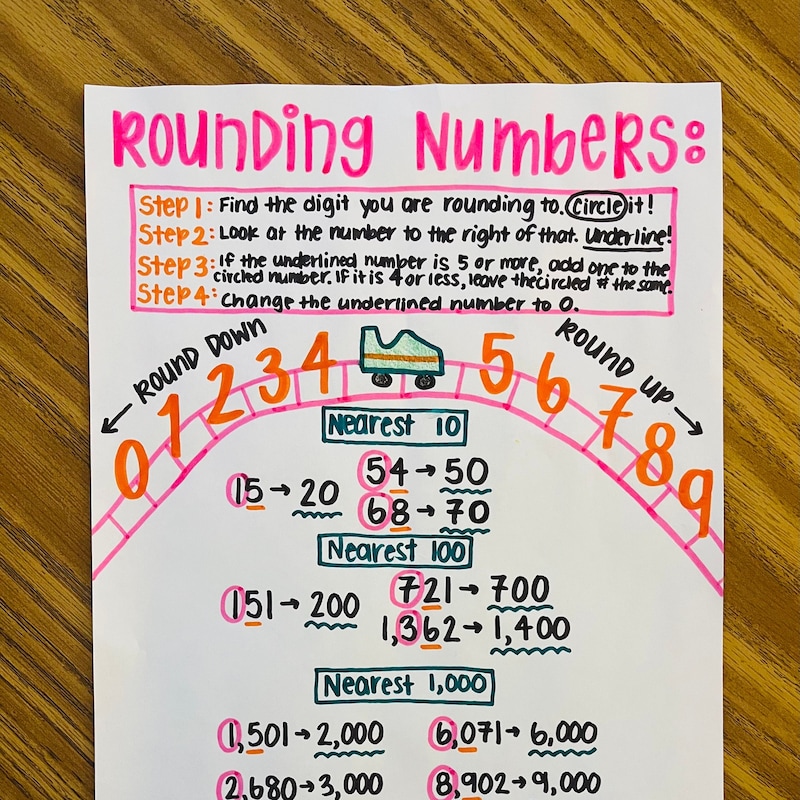 Rounding Numbers:
Step 1: Find the digit you are rounding to. Circle it!
Step 2: Look at the number to the right of that. Underline!
Step 3: If the underlined number is 5 or more, add one to the
circled number. If it is 4 or less, leave the circled # the same.
Step 4: Change the underlined number to 0.
← ROUND DOWN
ROUND UP →
0 1 2 3 4 5 6 7 8 9
Nearest 10
15 → 20
54 → 50
68 → 70
Nearest 100
151 → 200
721 → 700
1,362 → 1,400
Nearest 1,000
1,501 → 2,000
6,071 → 6,000
2,680 → 3,000
8,902 → 9,000